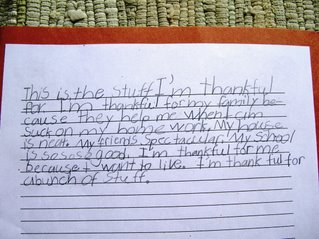 This is the stuff I'm thankful
for. I'm thankful for my family be-
cause they help me when I am
suck on my home work. My house
is neat. My friends spectacular. My school
is so so so good. I'm thankful for me
because I want to live. I'm thankful for
a bunch of stuff.